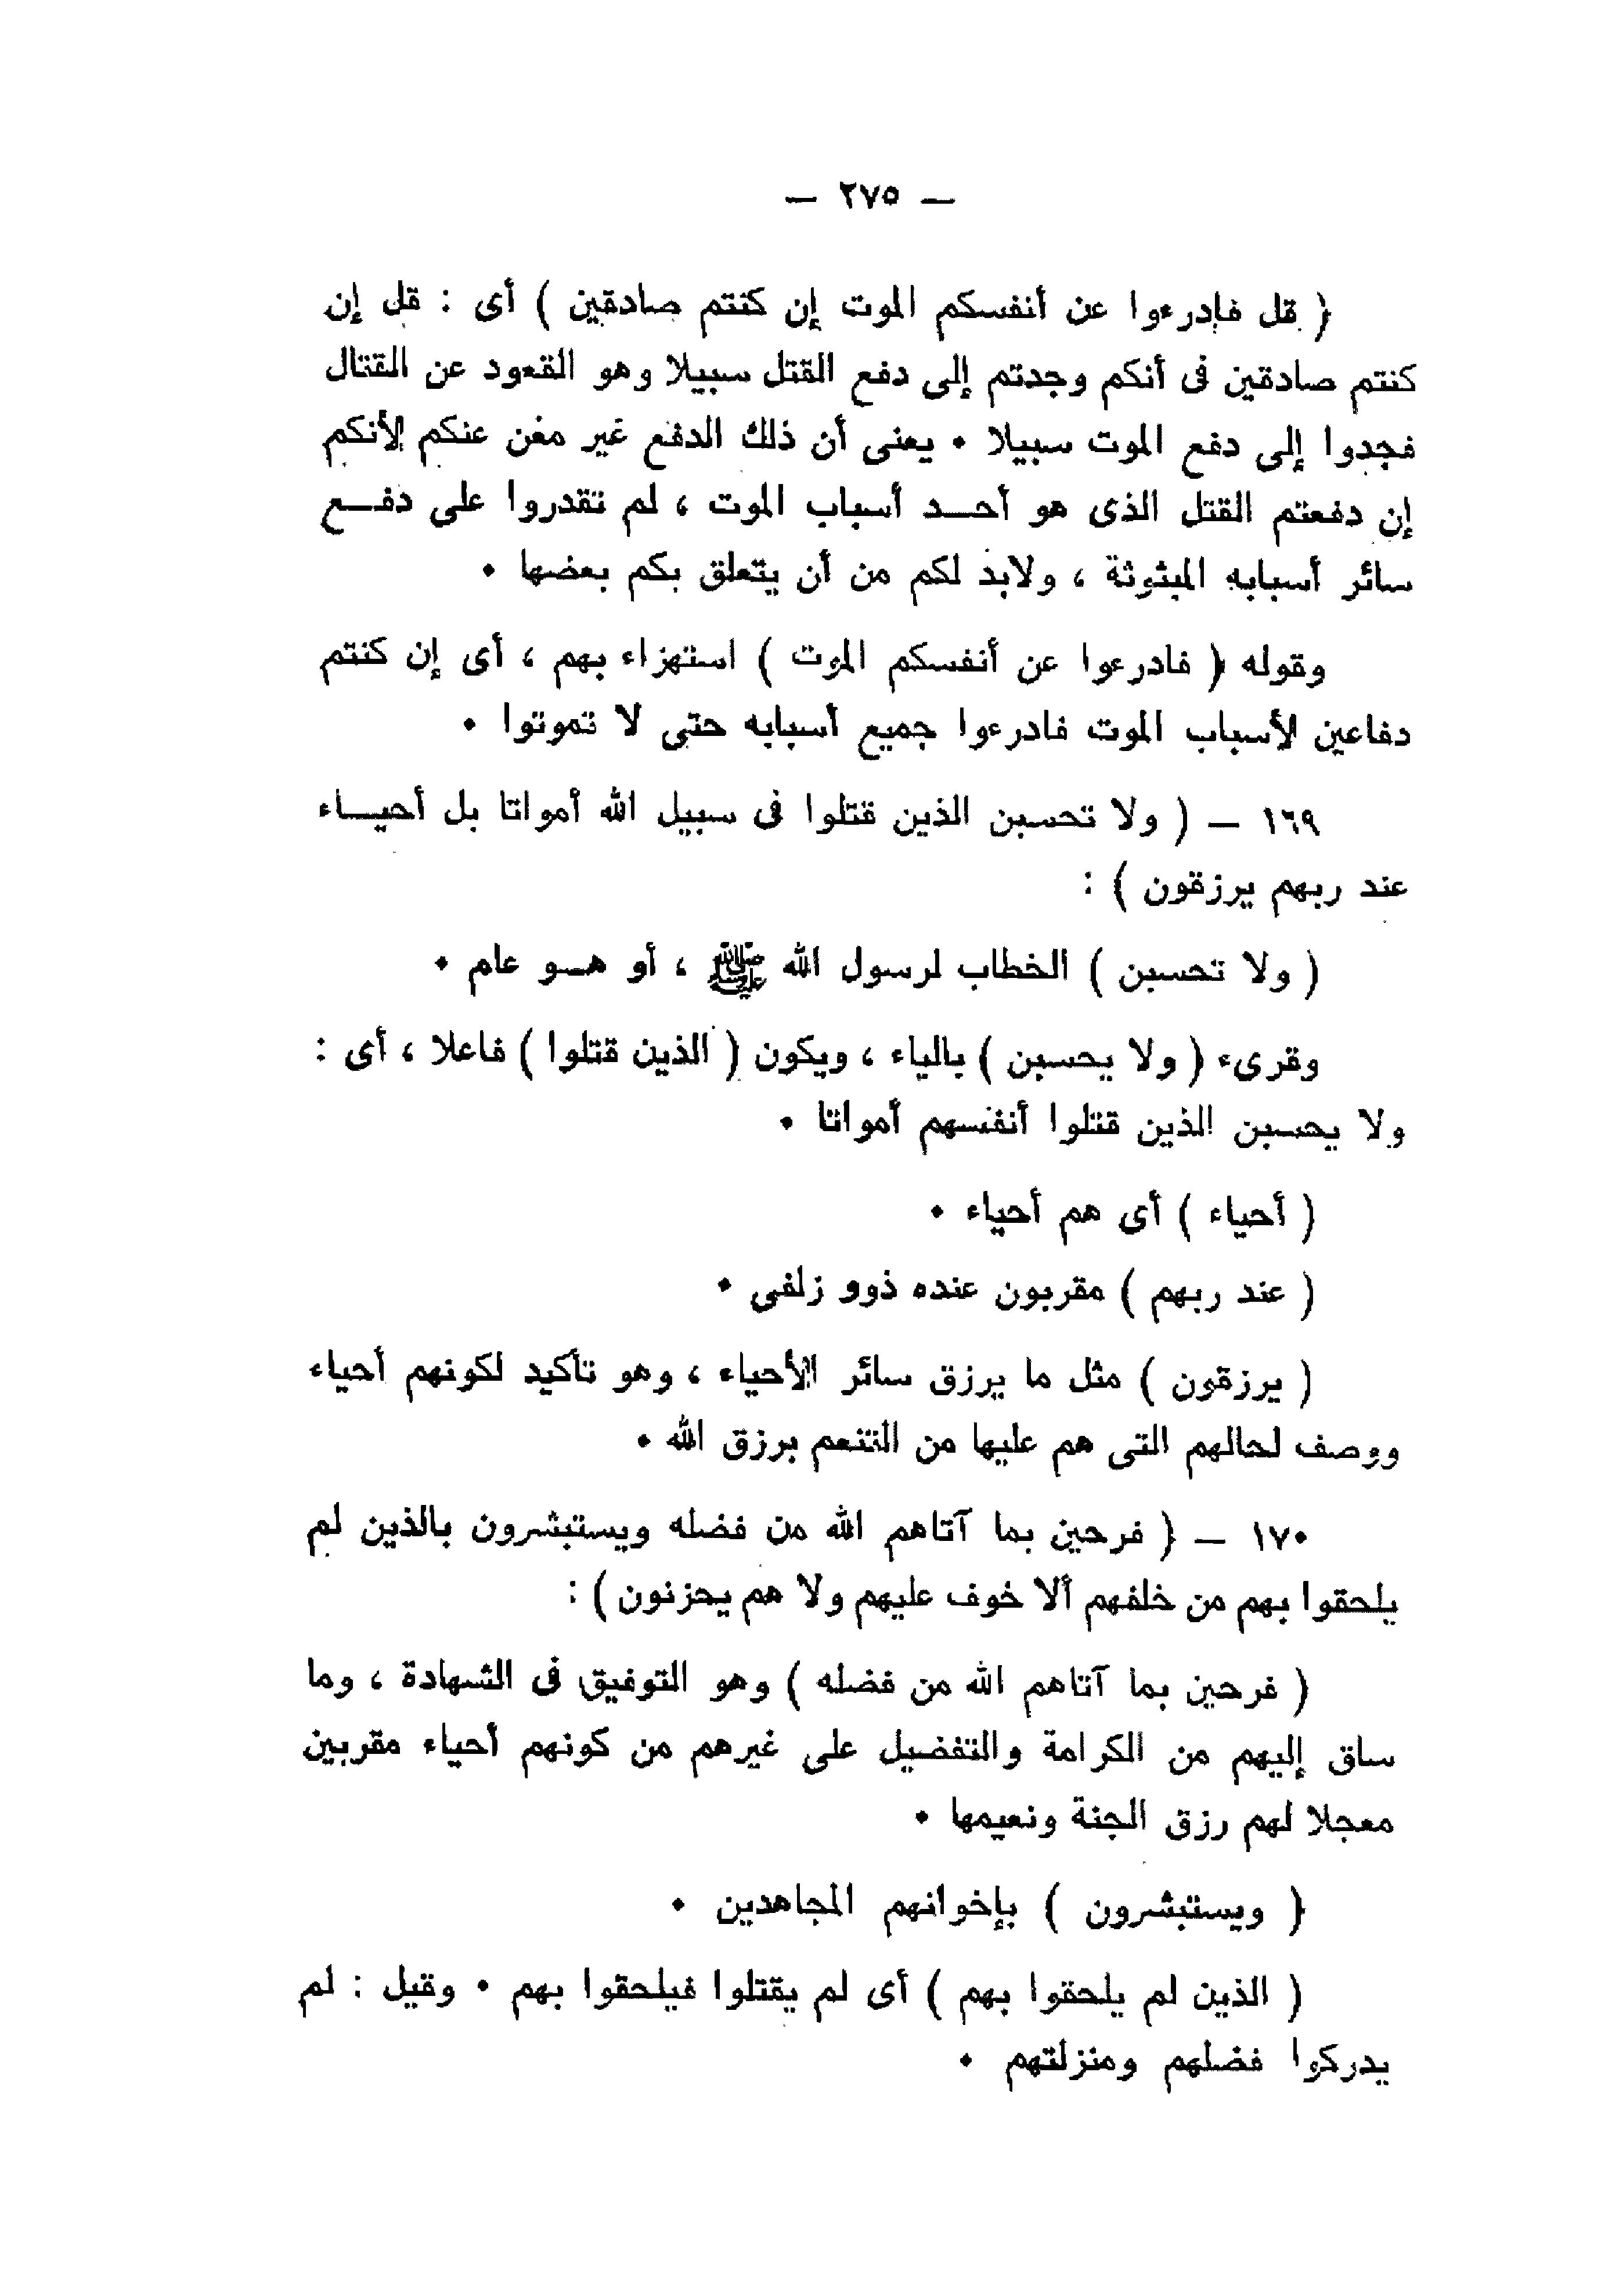 — ٢٧٥ —
( قل فادرءوا عن أنفسكم الموت إن كنتم صادقين ) أى : قل إن
كنتم صادقين فى أنكم وجدتم إلى دفع القتل سبيلا وهو القعود عن القتال
فجدوا إلى دفع الموت سبيلا • يعنى أن ذلك الدفع غير مغن عنكم لأنكم
إن دفعتم القتل الذى هو أحد أسباب الموت ، لم تقدروا على دفع
سائر أسبابه المبثوثة ، ولابد لكم من أن يتعلق بكم بعضها •
وقوله ( فادرءوا عن أنفسكم الموت ) استهزاء بهم ، أى إن كنتم
دفاعين لأسباب الموت فادرءوا جميع أسبابه حتى لا تموتوا •
١٦٩ — ( ولا تحسبن الذين قتلوا فى سبيل الله أمواتا بل أحياء
عند ربهم يرزقون ) :
( ولا تحسبن ) الخطاب لرسول الله ﷺ ، أو هو عام •
وقرىء ( ولا يحسبن ) بالياء ، ويكون ( الذين قتلوا ) فاعلا ، أى :
ولا يحسبن الذين قتلوا أنفسهم أمواتا •
( أحياء ) أى هم أحياء •
( عند ربهم ) مقربون عنده ذوو زلفى •
( يرزقون ) مثل ما يرزق سائر الأحياء ، وهو تأكيد لكونهم أحياء
ووصف لحالهم التى هم عليها من التنعم برزق الله •
١٧٠ — ( فرحين بما آتاهم الله من فضله ويستبشرون بالذين لم
يلحقوا بهم من خلفهم ألا خوف عليهم ولا هم يحزنون ) :
( فرحين بما آتاهم الله من فضله ) وهو التوفيق فى الشهادة ، وما
ساق إليهم من الكرامة والتفضيل على غيرهم من كونهم أحياء مقربين
معجلا لهم رزق الجنة ونعيمها •
( ويستبشرون ) بإخوانهم المجاهدين •
( الذين لم يلحقوا بهم ) أى لم يقتلوا فيلحقوا بهم • وقيل : لم
يدركوا فضلهم ومنزلتهم •